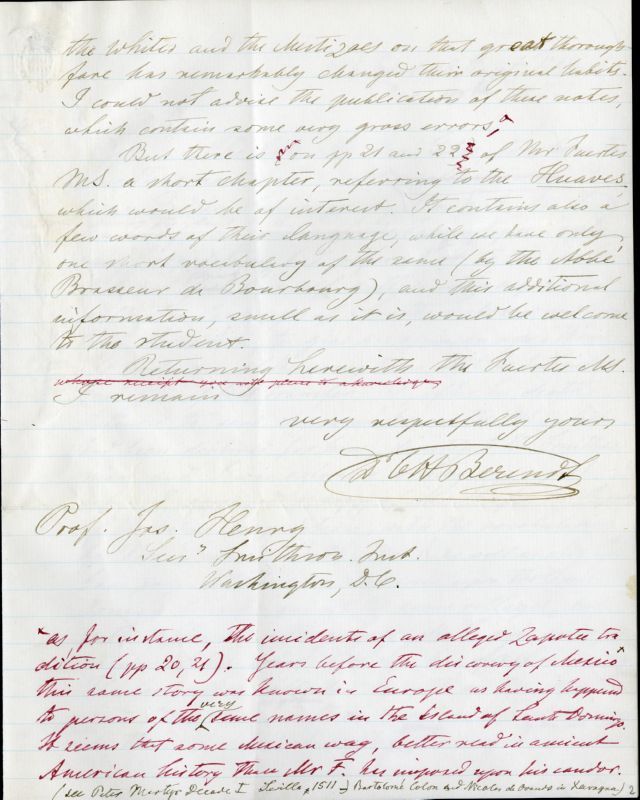 the Whites and the Mestizoes on that great thorough-
fare has remarkably changed their original habits.
I could not advise the publication of these notes,
which contain some very gross errors.*
But there is on pp 21 and 22 of Mr Fuertes
MS. a short chapter, referring to the Huaves
which would be of interest. It contains also a
few words of their language, while we have only
one short vocabulary of the same (by the Abbé
Brasseur de Bourbourg), and this additional
information, small as it is, would be welcome
to the student.
Returning herewith the Fuertes MS.
whose receipt you will please to acknowledge
I remain
very respectfully yours
Dr C H Berendt
Prof. Jos. Henry
Secy Smithson. Inst.
Washington, D.C.
*as, for instance, the incidents of an alleged Zapotec tra
dition (pp 20, 21). Years before the discovery of Mexico x
this same story was known in Europe as having happend
to persons of the very same names in the Island of Santo Domingo.
It seems that some Mexican wag, better read in ancient
American history than Mr F. has imposed upon his candor.
(see Peter Martyr Decade I Sevilla, 1511 Bartolomé Colon and Nicolas de Ovando in Xaragua)